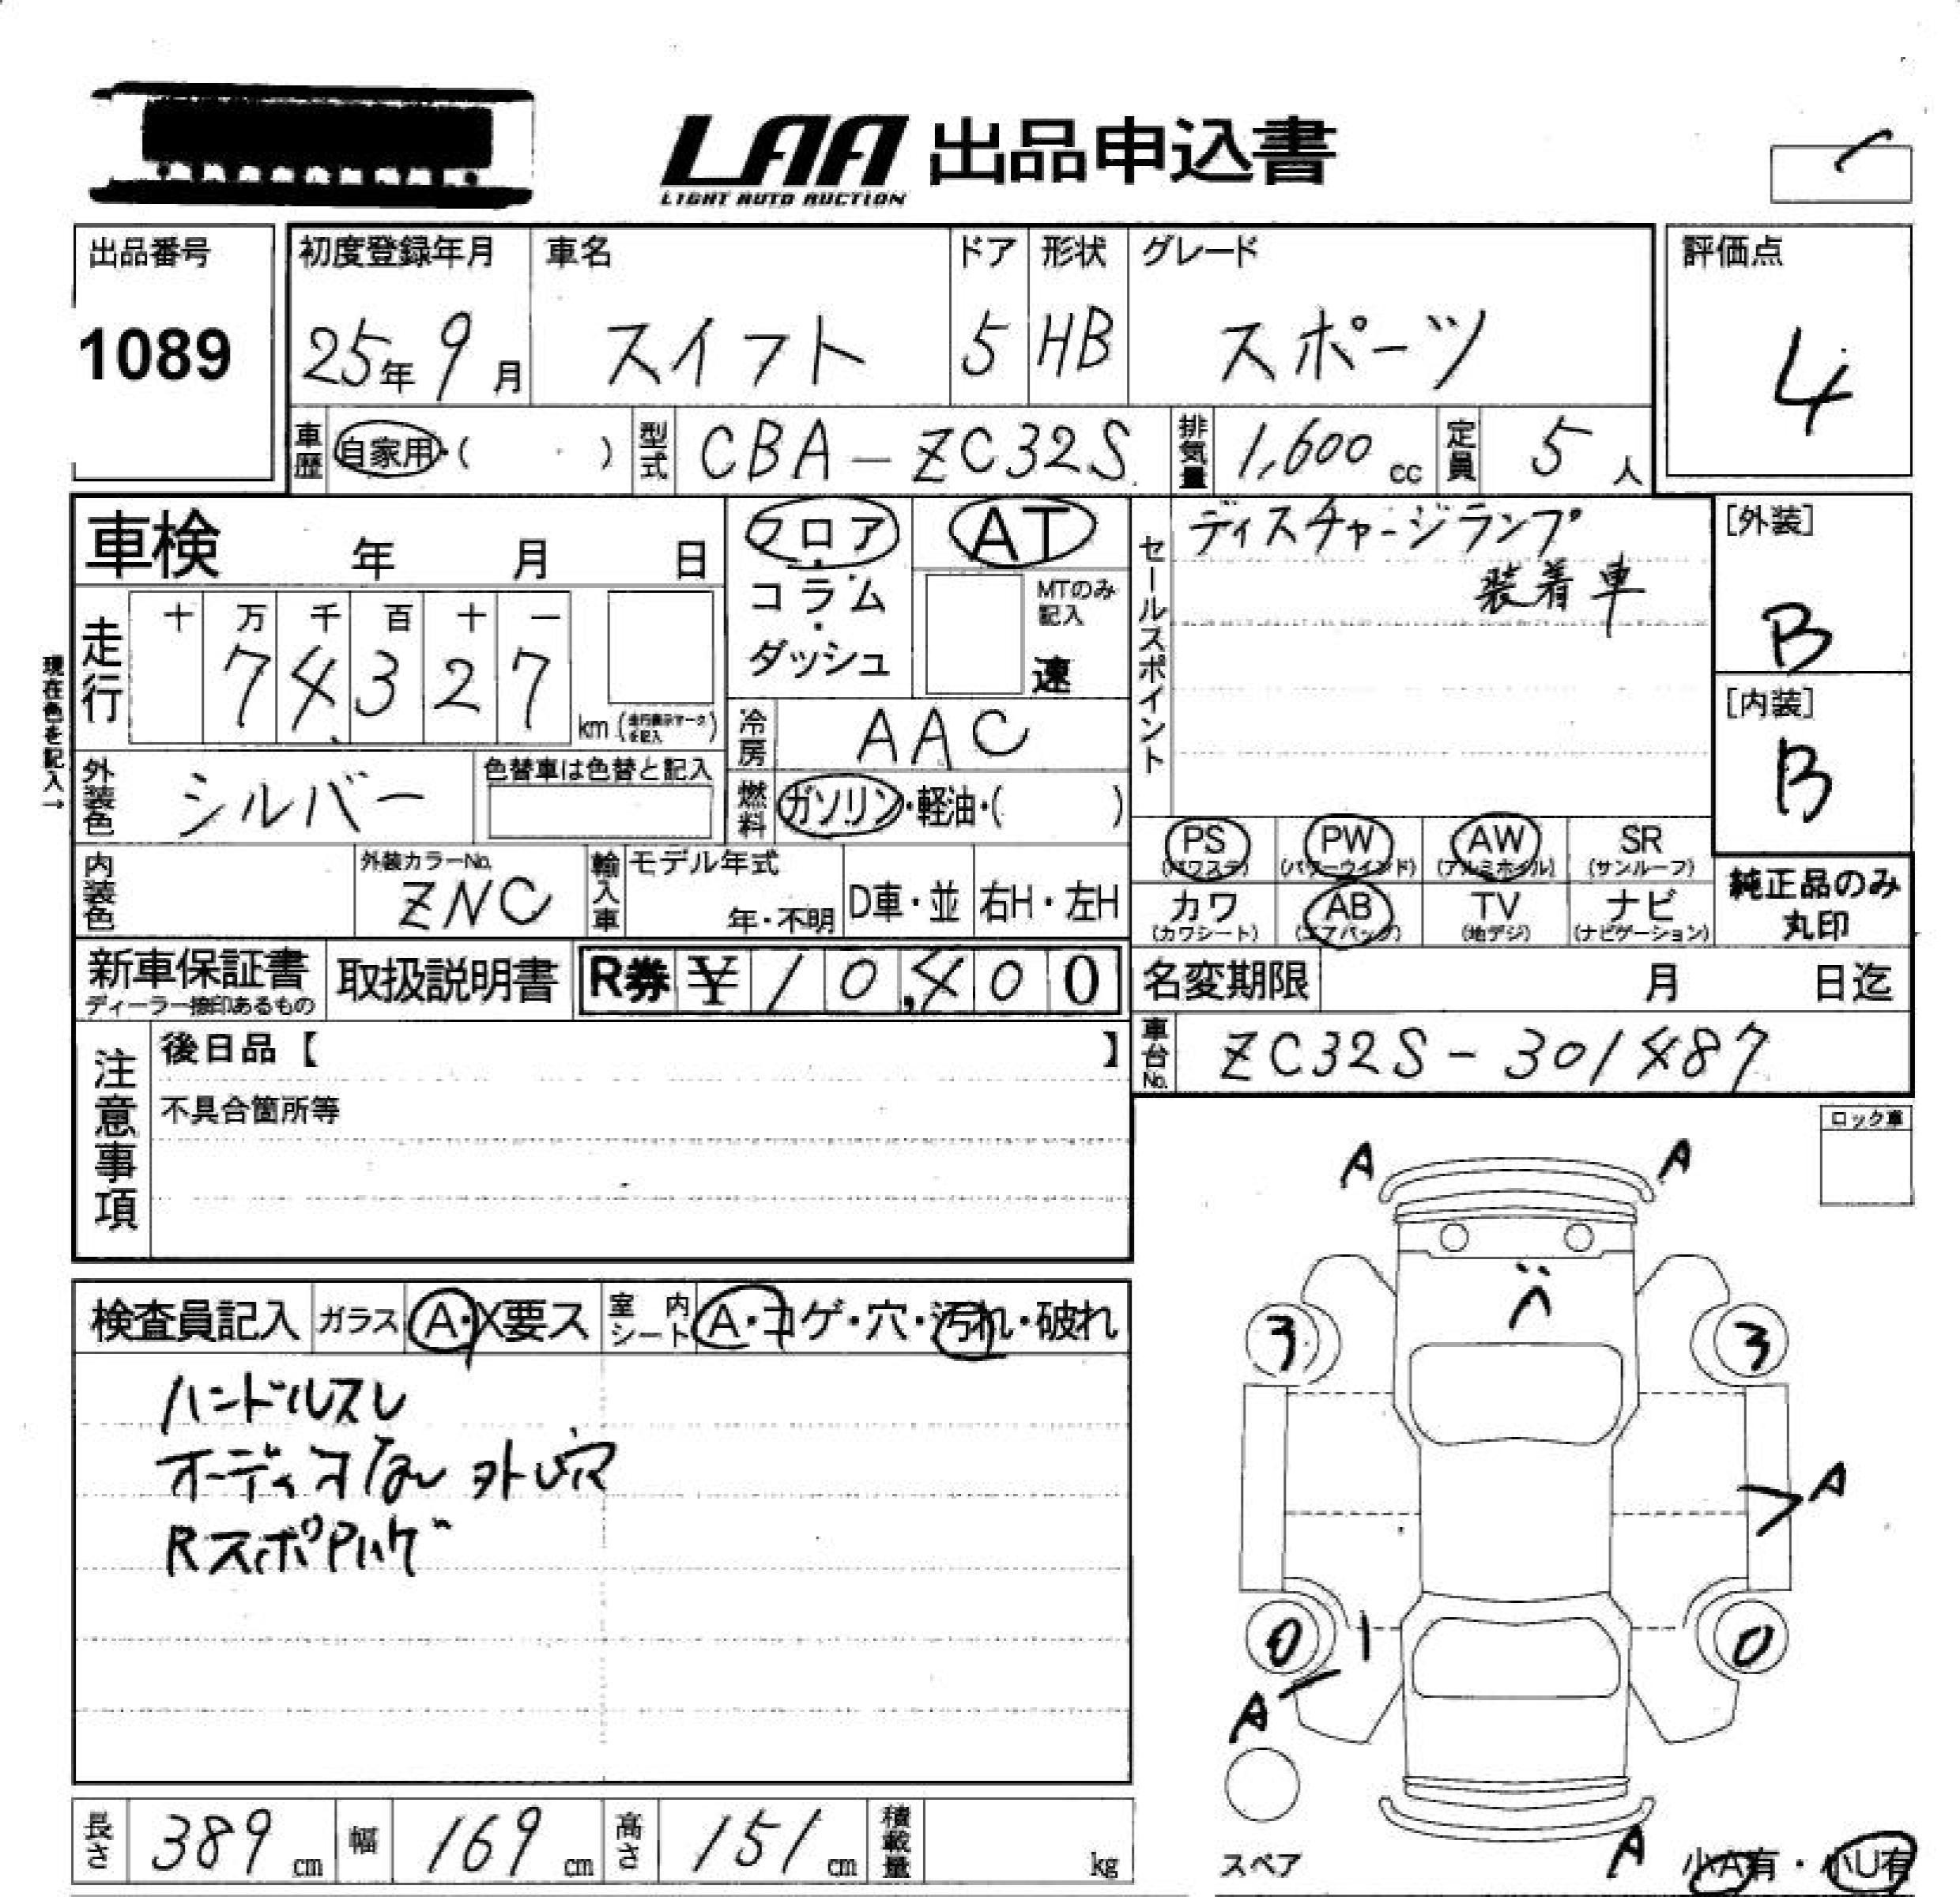 LAA 出品申込書
LIGHT AUTO AUCTION
出品番号
1089
初度登録年月
25年 9月
車名
スイフト
ドア
5
形状
HB
グレード
スポーツ
評価点
4
車歴
自家用・( ・ )
型式
CBA-ZC32S
排気量
1,600 cc
定員
5人
車検 年 月 日
フロア・コラム・ダッシュ
AT
MTのみ記入
速
セールスポイント
ディスチャージランプ
装着車
[外装]
B
[内装]
B
現在色を記入→
走行
十 万 千 百 十 一
7 4 3 2 7
km (走行表示マークを記入)
冷房
AAC
外装色
シルバー
色替車は色替と記入
燃料
ガソリン・軽油・( )
PS (パワステ)
PW (パワーウインド)
AW (アルミホイル)
SR (サンルーフ)
カワ (カワシート)
AB (エアバッグ)
TV (地デジ)
ナビ (ナビゲーション)
純正品のみ
丸印
内装色
外装カラーNo.
ZNC
輸入車
モデル年式
年・不明
D車・並
右H・左H
新車保証書
ディーラー捺印あるもの
取扱説明書
R券 ¥ 10,400
名変期限 月 日迄
車台No.
ZC32S-301487
注意事項
後日品【 】
不具合箇所等
ロック車
検査員記入
ガラス
A・X要ス
室内シート
A・コゲ・穴・汚れ・破れ
ハンドルスレ
オーディオなし 外し穴
A A
3 3
A
0 0
A
A
スペア
小A有・小U有
長さ
389 cm
幅
169 cm
高さ
151 cm
積載量
kg